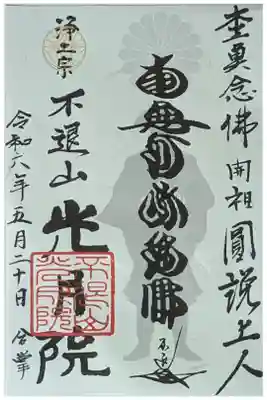 眞念佛開祖圓說上人
南無阿弥陀佛
浄土宗
不退山光月院
令和六年五月二十日 合掌